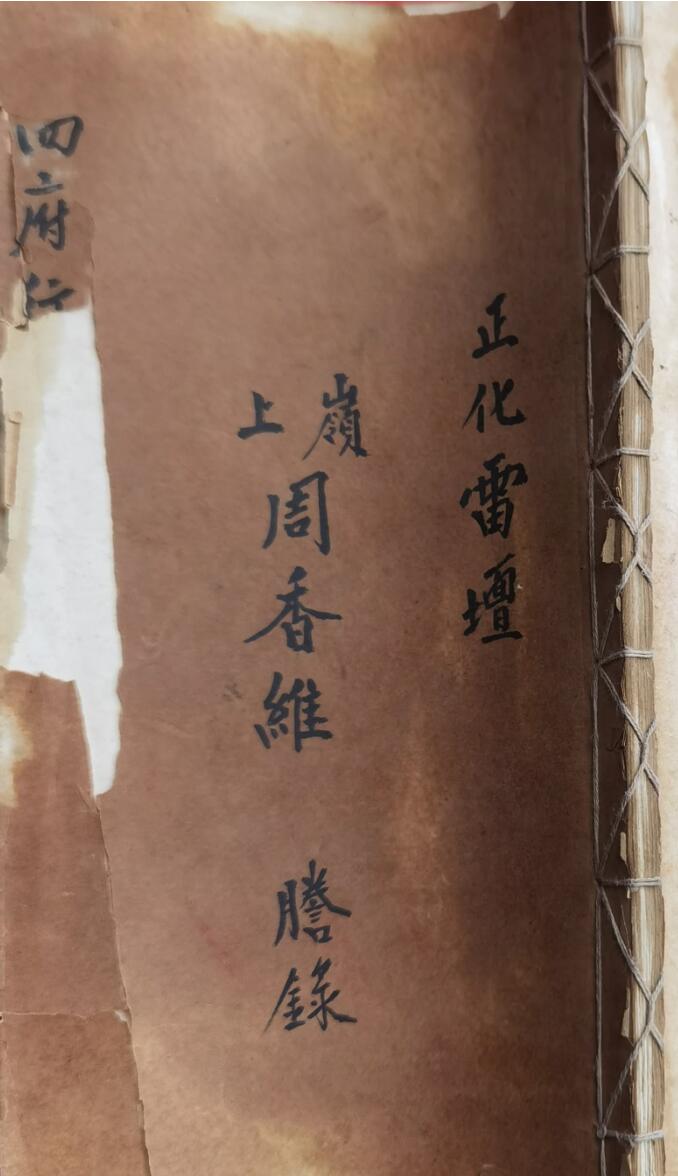 正化雷壇
嶺上
周香維 謄錄
四府行